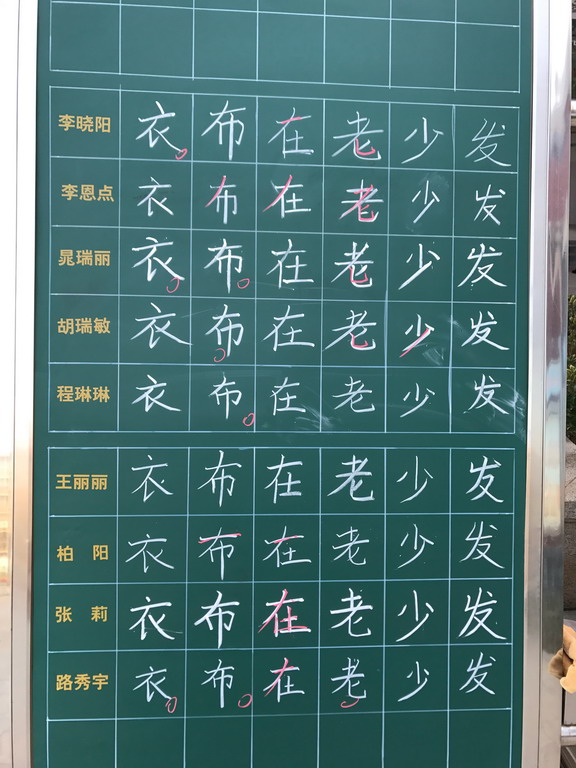 李晓阳 衣 布 在 老 少 发
李恩点 衣 布 在 老 少 发
晁瑞丽 衣 布 在 老 少 发
胡瑞敏 衣 布 在 老 少 发
程琳琳 衣 布 在 老 少 发
王丽丽 衣 布 在 老 少 发
柏 阳 衣 布 在 老 少 发
张 莉 衣 布 在 老 少 发
路秀宇 衣 布 在 老 少 发